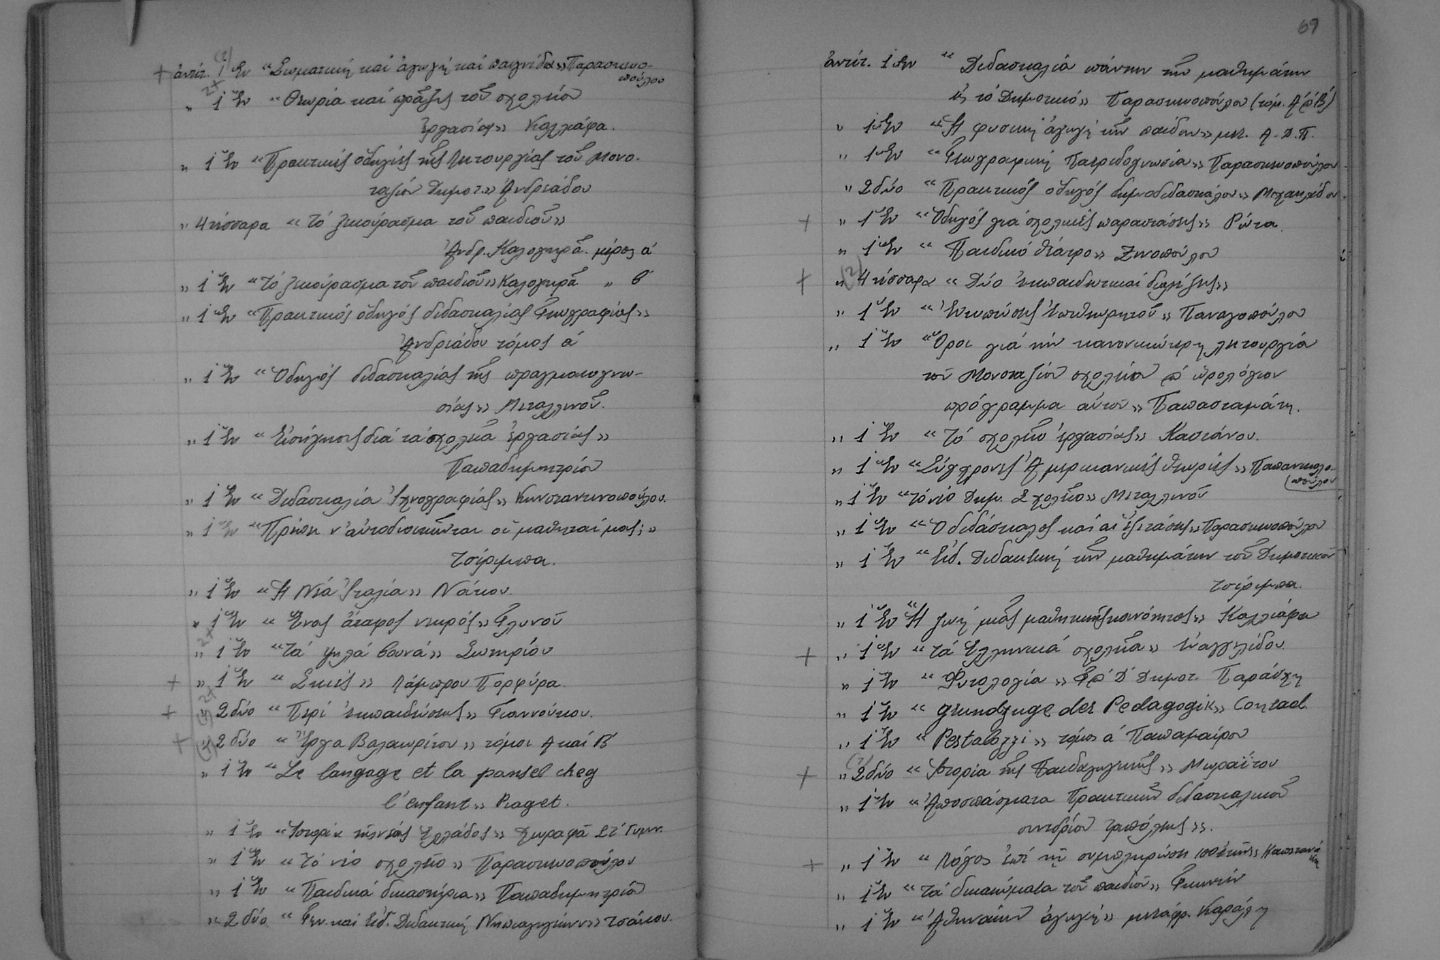 ἀντίτ. 1 ἕν "Σωματική καί ἀγωγή καί παιχνίδια" Παρασκευο-
πούλου
" 1 ἕν "Θεωρία καί πρᾶξις τοῦ σχολείου
ἐργασίας" Καλλιάφα.
" 1 ἕν "Πρακτικές ὁδηγίες τῆς λειτουργίας τοῦ Μονο-
ταξίου Δημοτ." Ἀνδριάδου
" 4 τέσσαρα "Τό ζωγράφισμα τοῦ παιδιοῦ"
Ἀνδρ. Καλογηρᾶ. μέρος α΄
" 1 ἕν "Τό ζωγράφισμα τοῦ παιδιοῦ" Καλογηρᾶ " β΄
" 1 ἕν "Πρακτικός ὁδηγός διδασκαλίας Γεωγραφίας"
Ἀνδριάδου τόμος α΄
" 1 ἕν "Ὁδηγός διδασκαλίας τῆς πραγματογνω-
σίας" Μεταλλινοῦ.
" 1 ἕν "Εἰσήγησις διά τά σχολεῖα ἐργασίας"
Παπαδημητρίου
" 1 ἕν "Διδασκαλία Ἰχνογραφίας" Κωνσταντινοπούλου.
" 1 ἕν "Πρέπει ν' αὐτοδιοικοῦνται οἱ μαθηταί μας;"
Τσίριμπα.
" 1 ἕν "Ἡ Νέα Ἰταλία" Νάκου.
" 1 ἕν "Ἕνας ἄταφος νεκρός" Γληνοῦ
" 1 ἕν "Τά ψηλά βουνά" Σωτηρίου
" 1 ἕν "Σκιές" Λάμπρου Πορφύρα.
" 2 δύο "Περί ἐκπαιδεύσεως" Γιαννούκου.
" 2 δύο "Ἔργα Βαλαωρίτου" τόμοι Α καί Β΄
" 1 ἕν "Le langage et la pansel cheg
l'enfant" Piaget.
" 1 ἕν "Ἱστορία τῆς νέας Ἑλλάδος" Ζωγραφᾶ Στ΄ Γυμν.
" 1 ἕν "Τό νέο σχολεῖο" Παρασκευοπούλου
" 1 ἕν "Παιδικά δικαστήρια" Παπαδημητρίου
" 2 δύο "Γεν. καί Εἰδ. Διδακτική Νηπιαγωγείων" Τσάκου.
69
ἀντίτ. 1 ἕν "Διδασκαλία πάντων τῶν μαθημάτων
εἰς τό Δημοτικό" Παρασκευοπούλου (τόμ. Α΄ & Β΄)
" 1 ἕν "Ἡ φυσική ἀγωγή τῶν παίδων" μετ. Α.Δ.Π.
" 1 ἕν "Γεωγραφική Πατριδογνωσία" Παρασκευοπούλου
" 2 δύο "Πρακτικός ὁδηγός δημοδιδασκάλου" Μιχαηλίδου
" 1 ἕν "Ὁδηγός για σχολικές παραστάσεις" Ρώτα.
" 1 ἕν "Παιδικό Θέατρο" Ξενοπούλου
" 4 τέσσαρα "Δύο ἐκπαιδευτικαί διαλέξεις"
" 1 ἕν "Ἐντυπώσεις Ἐπιθεωρητοῦ" Παναγοπούλου
" 1 ἕν "Ὅροι γιά τήν κανονικώτερη λειτουργία
τοῦ Μονοταξίου σχολείου & ὡρολόγιον
πρόγραμμα αὐτοῦ" Παπασταμάτη.
" 1 ἕν "Τό σχολεῖο ἐργασίας" Καστάνου.
" 1 ἕν "Σύγχρονες Ἀμερικανικές θεωρίες" Παπανικολο-
πούλου
" 1 ἕν "Τό νέο Δημ. Σχολεῖο" Μεταλλινοῦ
" 1 ἕν "Ὁ διδάσκαλος καί αἱ ἐξετάσεις" Παρασκευοπούλου
" 1 ἕν "Εἰδ. Διδακτική τῶν μαθημάτων τοῦ Δημοτικοῦ
Τσίριμπα.
" 1 ἕν "Ἡ ζωή μιᾶς μαθητικῆς κοινότητος" Καλλιάφα
" 1 ἕν "Τά Ἑλληνικά σχολεῖα" Εὐαγγελίδου.
" 1 ἕν "Φυτολογία" Γ & Δ Δημοτ. Παράσχη
" 1 ἕν "Grundzuge des Pedagogik" Conrad
" 1 ἕν "Pestalozzi" τόμος α΄ Παπαμαύρου
" 2 δύο "Ἱστορία τῆς Παιδαγωγικῆς" Μωραΐτου
" 1 ἕν "Ἀποσπάσματα Πρακτικῶν διδασκαλικοῦ
συνεδρίου Τριπόλεως".
" 1 ἕν "Λόγος ἐπί τῇ συμπληρώσει
" 1 ἕν "Τά δικαιώματα τοῦ παιδιοῦ"
" 1 ἕν "Ἀθηναίων ἀγωγή" μετάφρ. Καράλη